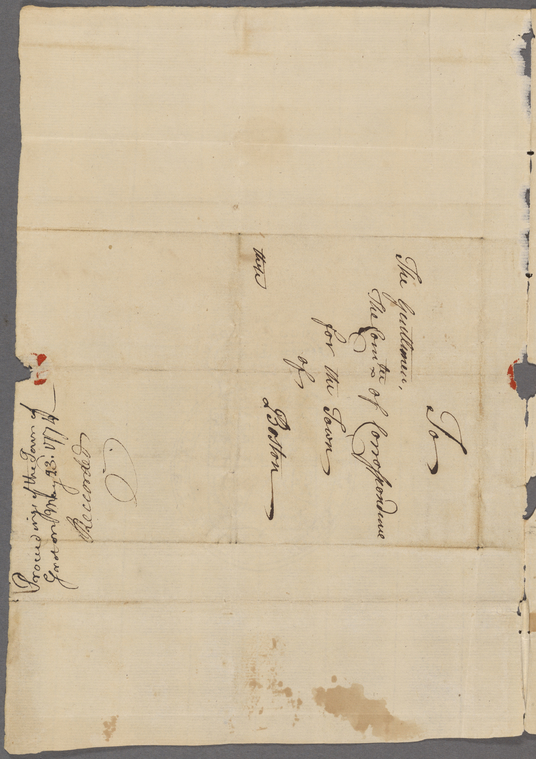 To
The Gentlemen,
The Comtee of Correspondence
for the Town
of
Boston
Proceedings of the Town of
Groton May 23. 1774
Recorded